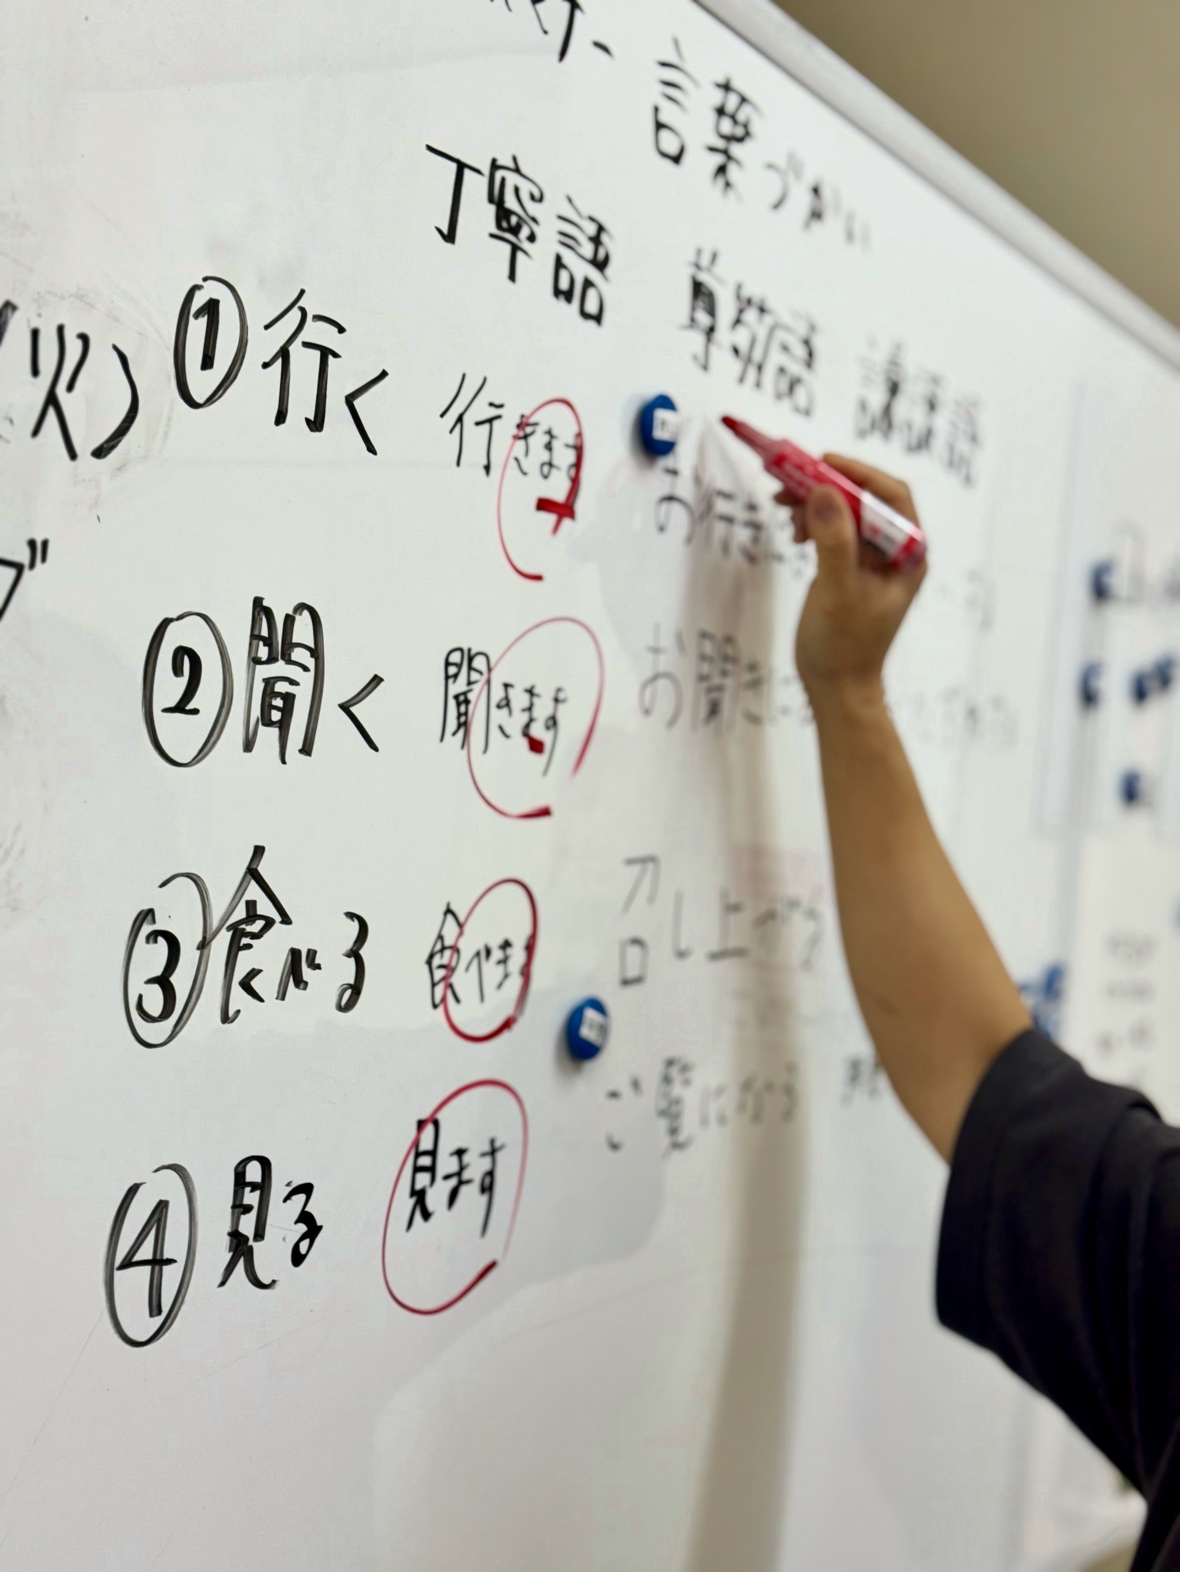 言葉づかい
丁寧語 尊敬語 謙譲語
(火) ①行く 行きます お行きに
②聞く 聞きます お聞きに
③食べる 食べます 召し上がる
④見る 見ます ご覧になる